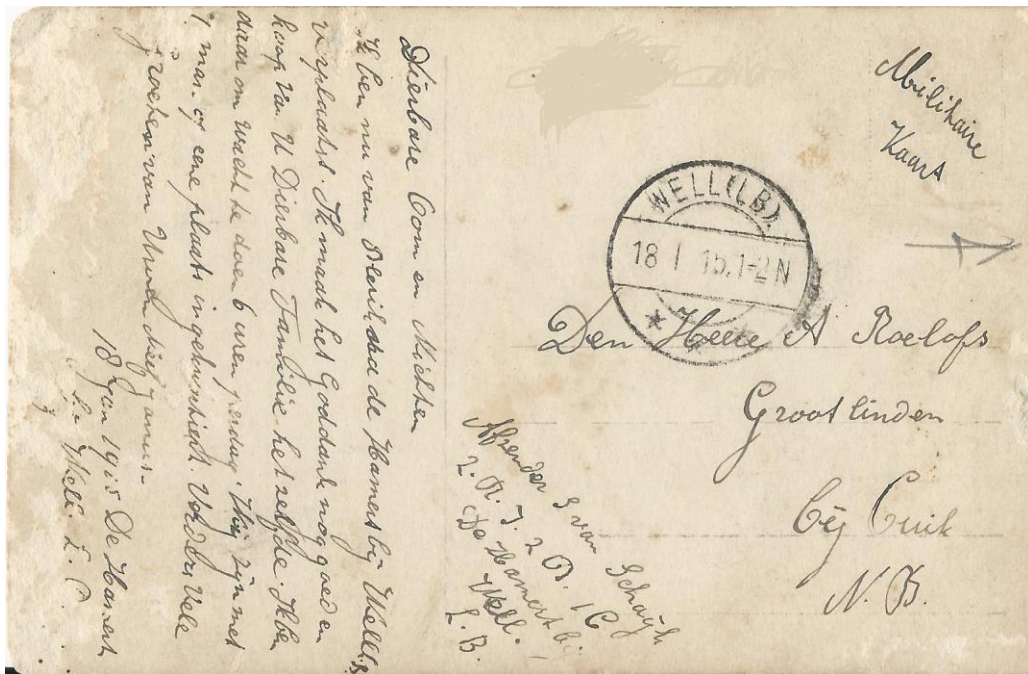 Militaire
Kaart
WELL (LB).
18 1 15.1-2N
Den Heere A Roelofs
Grootlinden
bij Cuik
N.B.
Afzender G van Schaijk
2. R. I. 2 B. 1 C
De Hamert bij
Well.
L. B.
Dierbare Oom en Nichten
Ik ben nu van de Hamert bij Well
verplaatst. Ik maak het Goddank nog goed en
hoop van U Dierbare Familie hetzelfde. Ik ben
daar om wacht te doen 6 uren perdag. Wij zijn met
1 man. op eene plaats ingekwartierd. Verder Vele
groeten van Uwen
18 Jan 1915 De Hamert
Well. L. B.